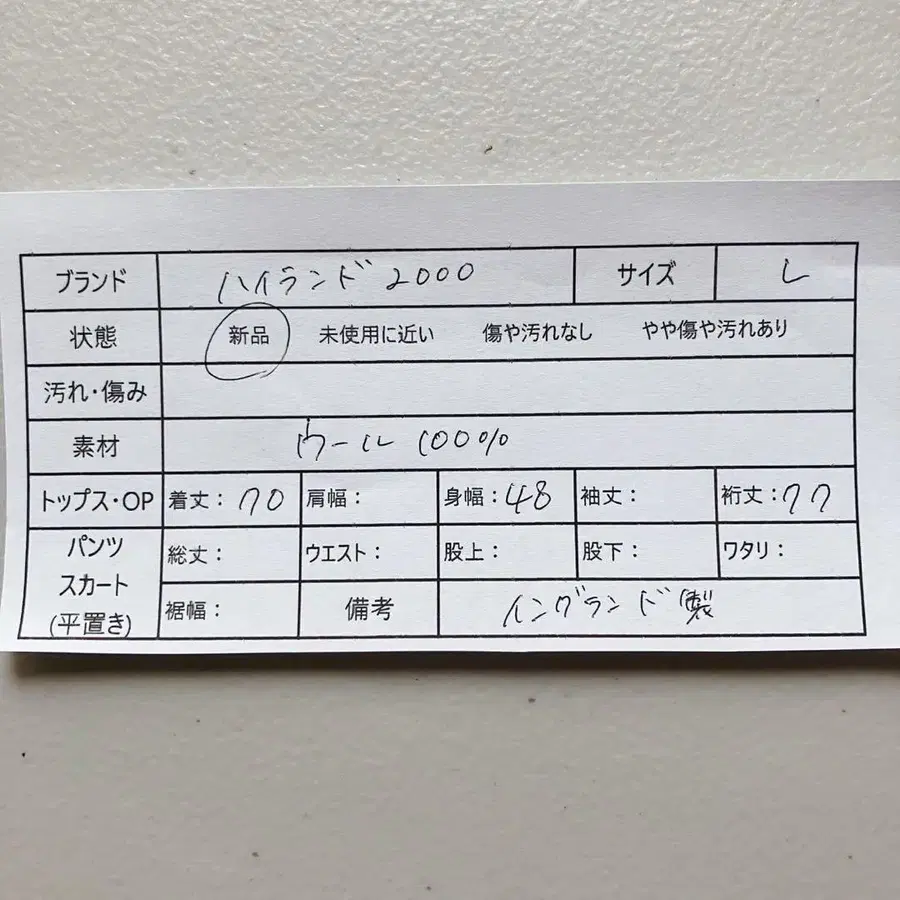 ブランド ハイランド2000 サイズ L
状態 新品 未使用に近い 傷や汚れなし やや傷や汚れあり
汚れ・傷み
素材 ウール 100%
トップス・OP 着丈：70 肩幅： 身幅：48 袖丈： 裄丈：77
パンツ スカート (平置き) 総丈： ウエスト： 股上： 股下： ワタリ：
裾幅： 備考 イングランド製